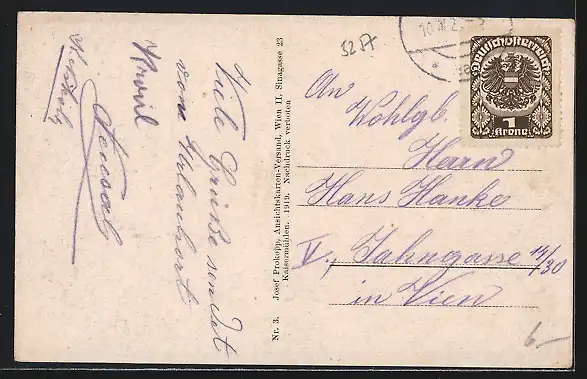 Viele Grüße sendet
von
52 Pf
Nr. 3. Josef Prokopp, Ansichtskarten-Versand, Wien II, Sinagasse 23
Kaisermühlen. 1919. Nachdruck verboten
Deutschösterreich
1
Krone
An
Wohlgb.
Herrn
Hans Hanke
V., Jahngasse 14/30
in Wien
6—